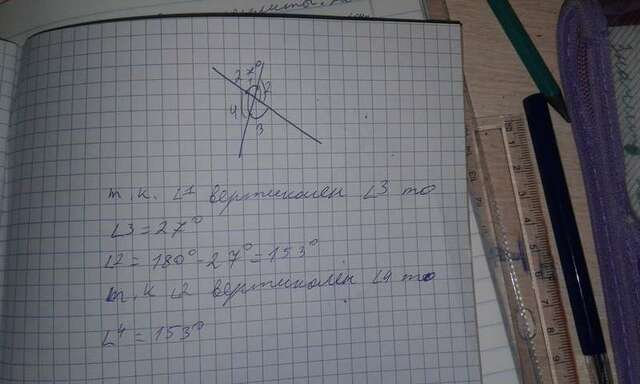 27°
1
2
4
3
т.к. ∠1 вертикален ∠3 то
∠3 = 27°
∠2 = 180° - 27° = 153°
т.к ∠2 вертикален ∠4 то
∠4 = 153°